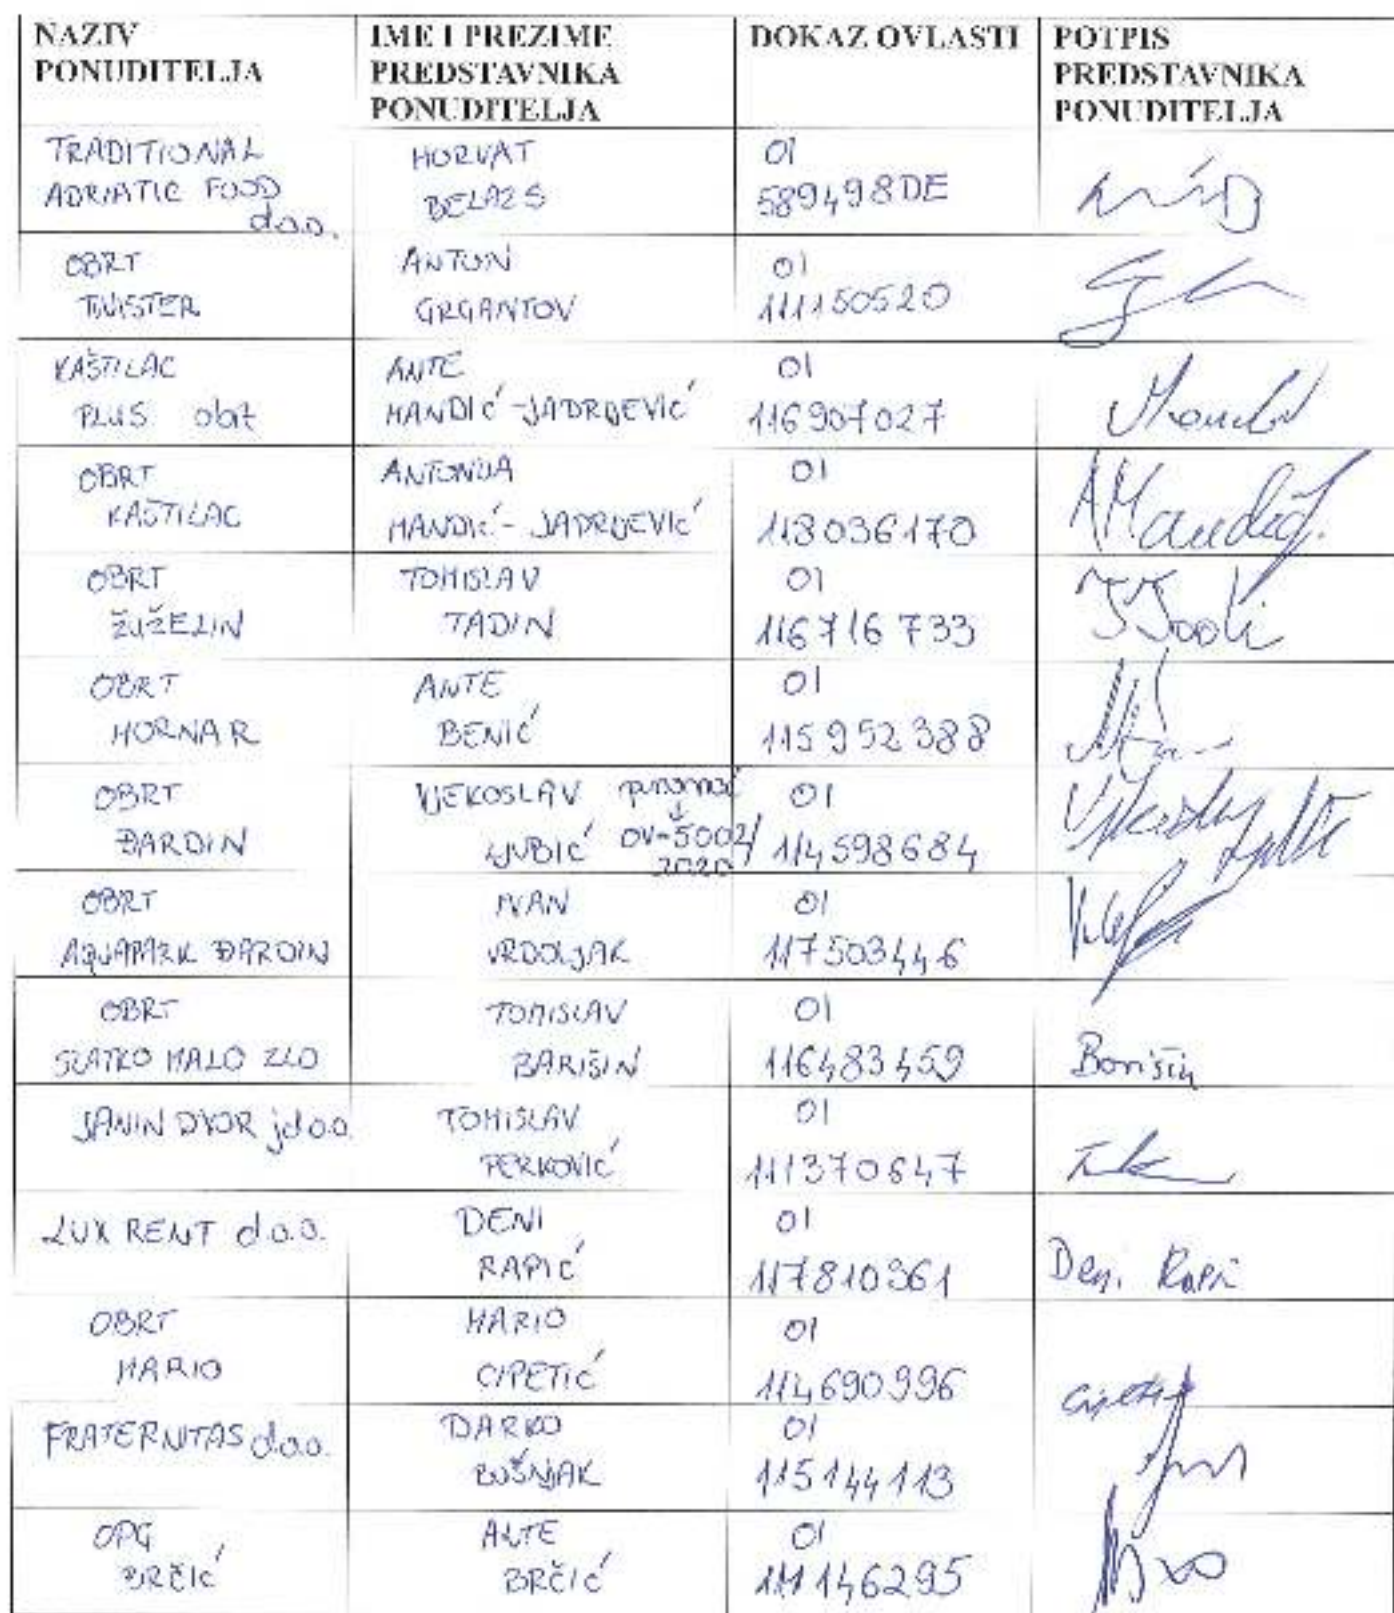 NAZIV PONUDITELJA
IME I PREZIME PREDSTAVNIKA PONUDITELJA
DOKAZ OVLASTI
POTPIS PREDSTAVNIKA PONUDITELJA
TRADITIONAL
ADRIATIC FOOD
d.o.o.
HORVAT
BELAZS
OI
589498DE
OBRT
TWISTER
ANTON
GRGANTOV
OI
111150520
KAŠTILAC
PLUS obrt
ANTE
MANDIĆ-JADRIJEVIĆ
OI
116907027
OBRT
KAŠTILAC
ANTONIJA
MANDIĆ-JADRIJEVIĆ
OI
118036170
OBRT
ŽUŽELIN
TOMISLAV
TADIN
OI
116716733
OBRT
MORNAR
ANTE
BENIĆ
OI
115952388
OBRT
ĐARDIN
VJEKOSLAV
LJUBIĆ
punomoć
↓
OV-5002/
2020
OI
114598684
OBRT
AQUAPARK ĐARDIN
IVAN
VRDOLJAK
OI
117503446
OBRT
SLATKO MALO ZLO
TOMISLAV
BARIŠIN
OI
116483459
Barišin
JANIN DVOR jdoo.
TOMISLAV
PERKOVIĆ
OI
111370647
LUX RENT d.o.o.
DENI
RAPIĆ
OI
117810361
Deni Rapić
OBRT
MARIO
MARIO
CIPETIĆ
OI
114690996
FRATERNITAS d.o.o.
DARKO
BOŠNJAK
OI
115144113
OPG
BRČIĆ
ANTE
BRČIĆ
OI
111146295